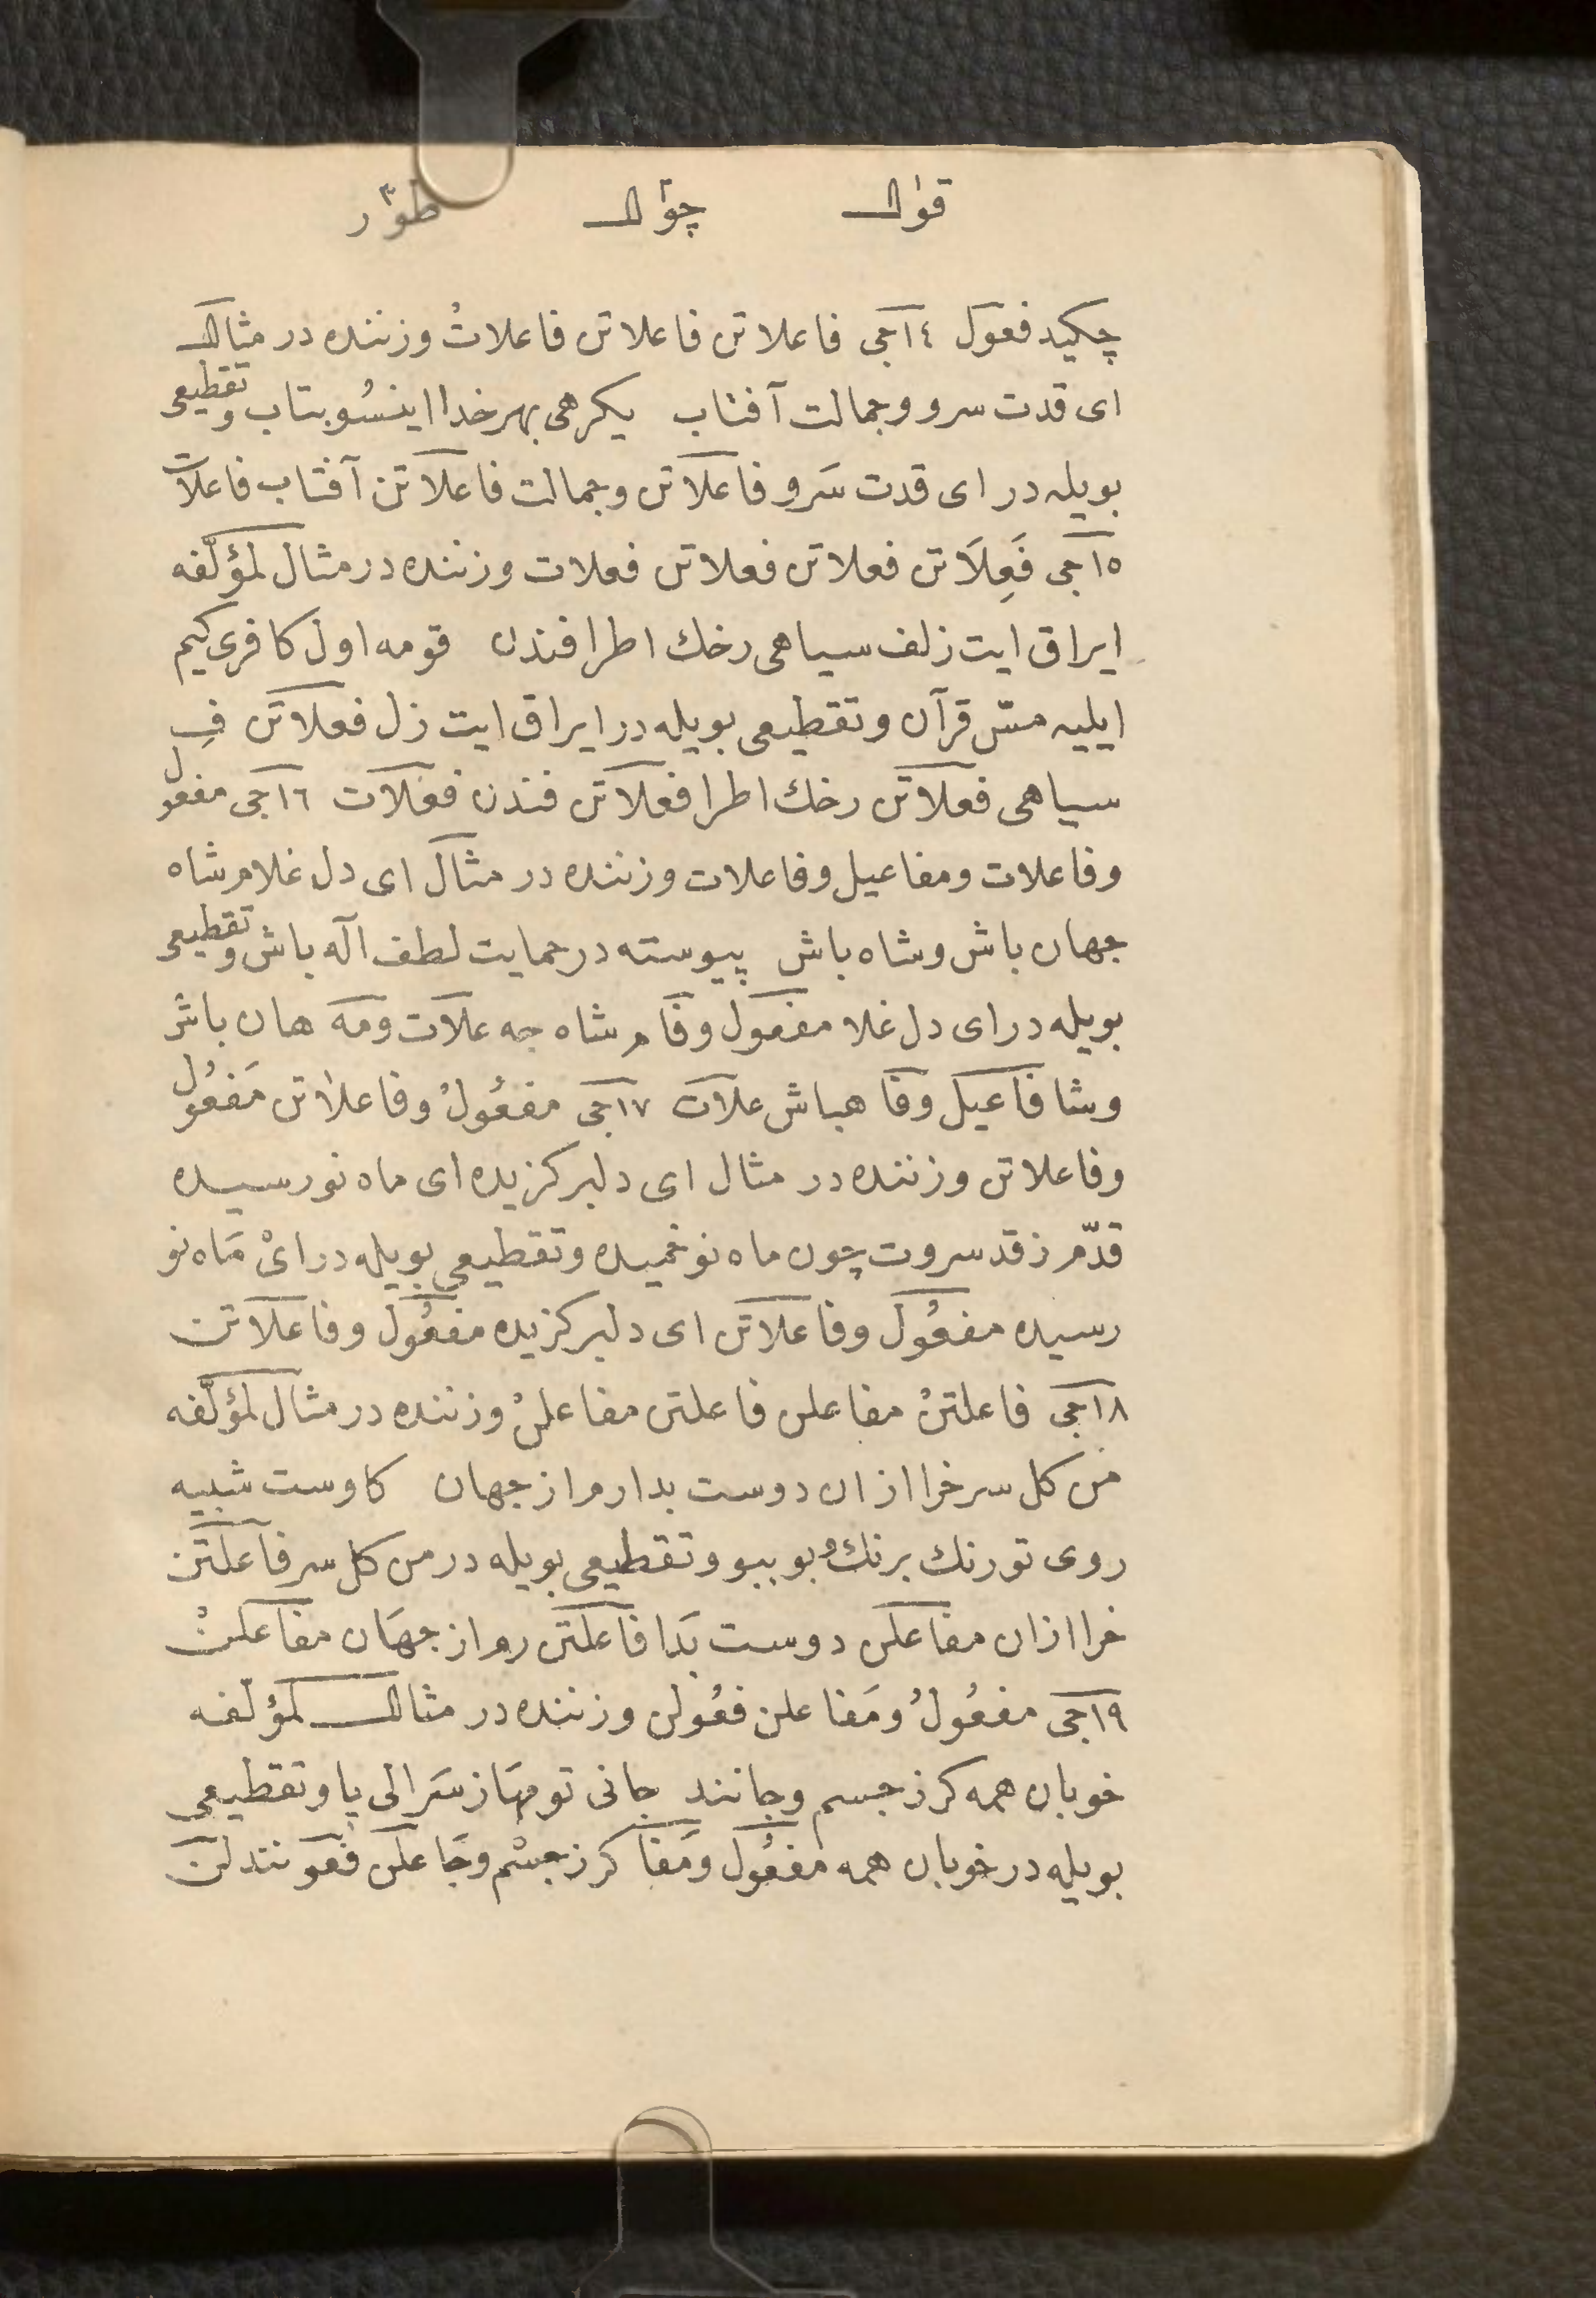 قوٰال چوٰال طوٰر
چكيد فعول ١٤جى فاعلاتن فاعلاتن فاعلاتُ وزننده در مثال
اى قدت سرو وجمالت آفتاب يكرهى بهر خدا اينسُو بتاب وتقطيعى
بويله در اى قدت سَرو فاعلاتن وجمالت فاعلاتن آفتاب فاعلات
١٥جى فَعِلَاتن فعلاتن فعلاتن فعلات وزننده در مثال لمؤلّفه
ايراق ايت زلف سياهى رخك اطرافندن قومه اول كافرى كيم
ايليه مسّ قرآن وتقطيعى بويله در ايراق ايت زل فعلاتن فِ
سياهى فعلاتن رخك اطرا فعلاتن فندن فعلات ١٦جى مفعول
وفاعلات ومفاعيل وفاعلات وزننده در مثال اى دل غلام شاه
جهان باش وشاه باش پيوسته در حمايت لطف اله باش وتقطيعى
بويله در اى دل غلا مفعول وفا م شاه جه علات ومه هان باش
وشا فاعيل وفا هباش علات ١٧جى مفعُولُ وفاعلاتن مَفعُولُ
وفاعلاتن وزننده در مثال اى دلبر كزيده اى ماه نو رسيده
قدّم ز قد سروت چون ماه نو خميده وتقطيعى بويله در اىْ مَاه نو
رسيده مفعُول وفاعلاتن اى دلبر كزيده مفعُول وفاعلاتن
١٨جى فاعلتنْ مفاعلن فاعلتن مفاعلنْ وزننده در مثال لمؤلّفه
من كل سرخرا ازان دوست بدارم از جهان كاوست شبيه
روى تو رنك برنك وبو ببو وتقطيعى بويله در من كل سر فاعلتن
خرا ازان مفاعلن دوست بَدا فاعلتن رم از جهَان مفاعلنْ
١٩جى مفعُولُ ومَفاعلن فعُولن وزننده در مثال لمؤلفه
خوبان همه كر ز جسم وجانند جانى تو مهَا ز سَر الى پا وتقطيعى
بويله در خوبان همه مفعُول ومَفا كر ز جسْم وجَا علن فعو نند لن